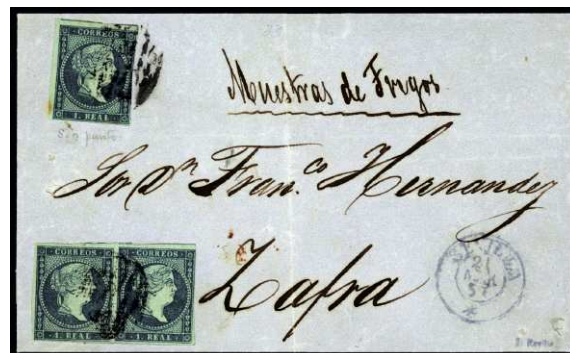 CORREOS
1. REAL
Muestras de Trigos
Sor Dn Franco Hernandez
Zafra
CORREOS CORREOS
1. REAL 1. REAL